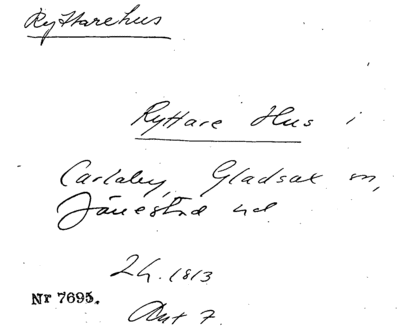 Ryttarehus
Ryttare Hus i
Carlaby, Gladsax sn,
Järrestad hd
24.1813
Nr 7695.
Ant 7